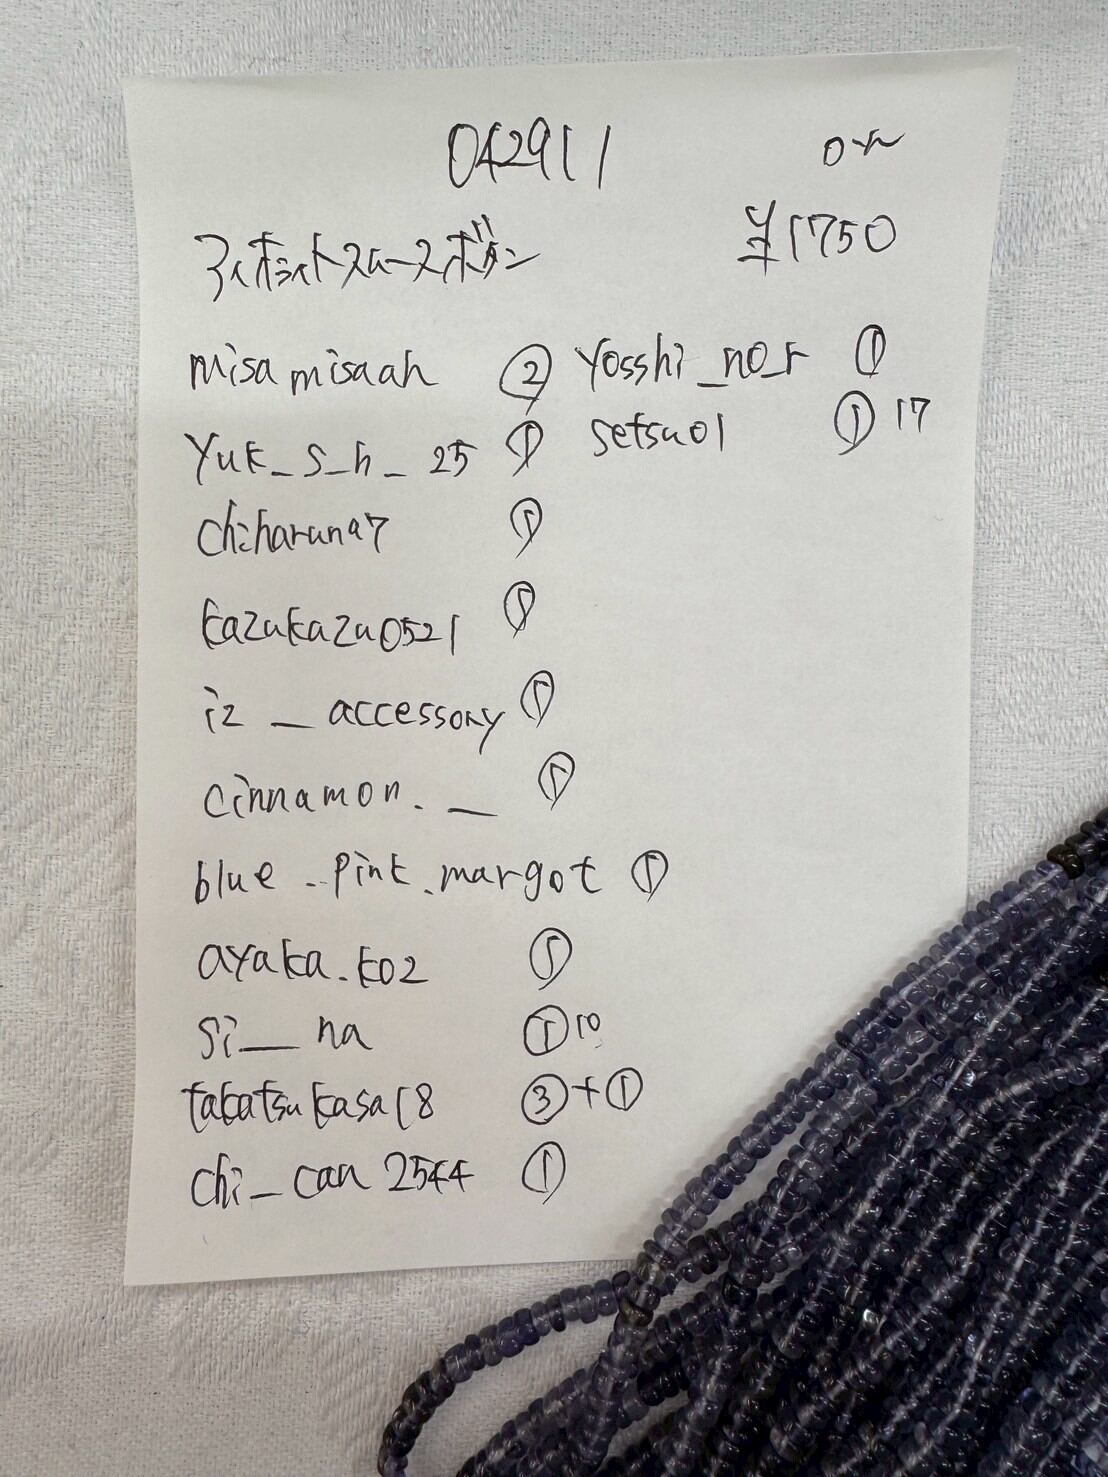 042911
アイオライトスムースボタン ¥1750
misamisaah ②
yuk_s_h_25 ①
chiharuna7 ①
kazukazu0521 ①
iz_accessory ①
cinnamon._ ①
blue_.pink.margot ①
ayaka.k02 ①
si__na ① 10
takatsukasa18 ③+①
chi_can2544 ①
yosshi_no_r ①
setsu01 ① 17